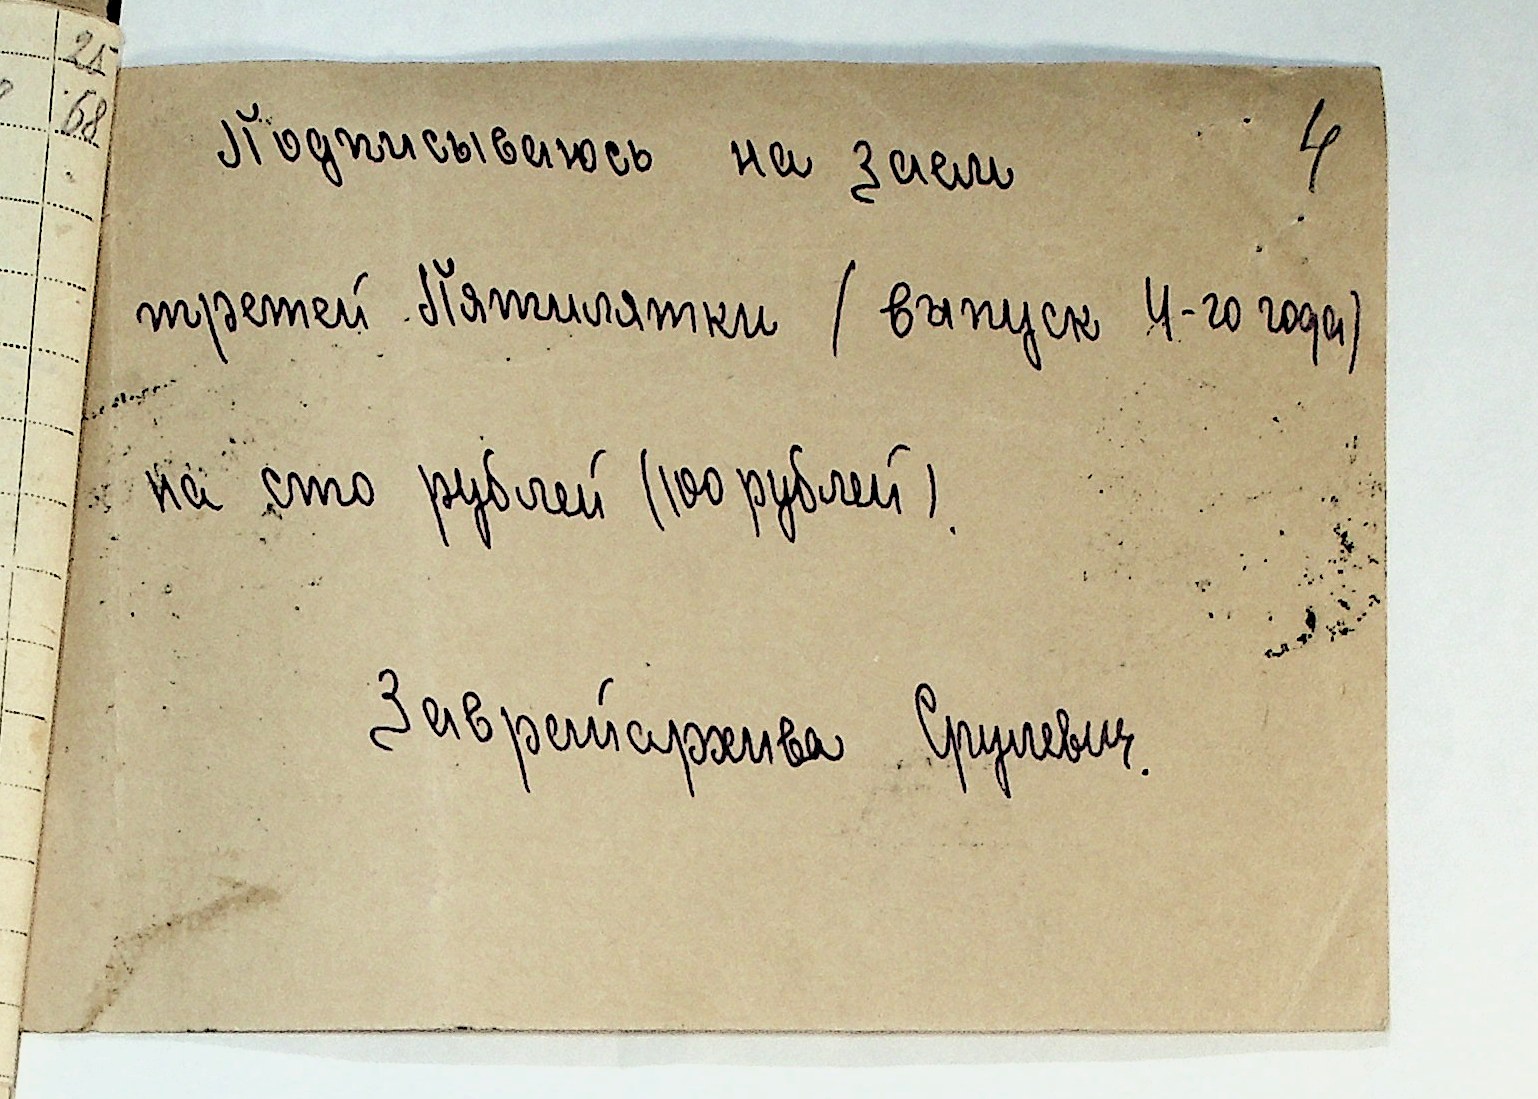 25
68
4
Подписываюсь на заем
третей Пятилятки (выпуск 4-го года)
на сто рублей (100 рублей).
Заврайархива